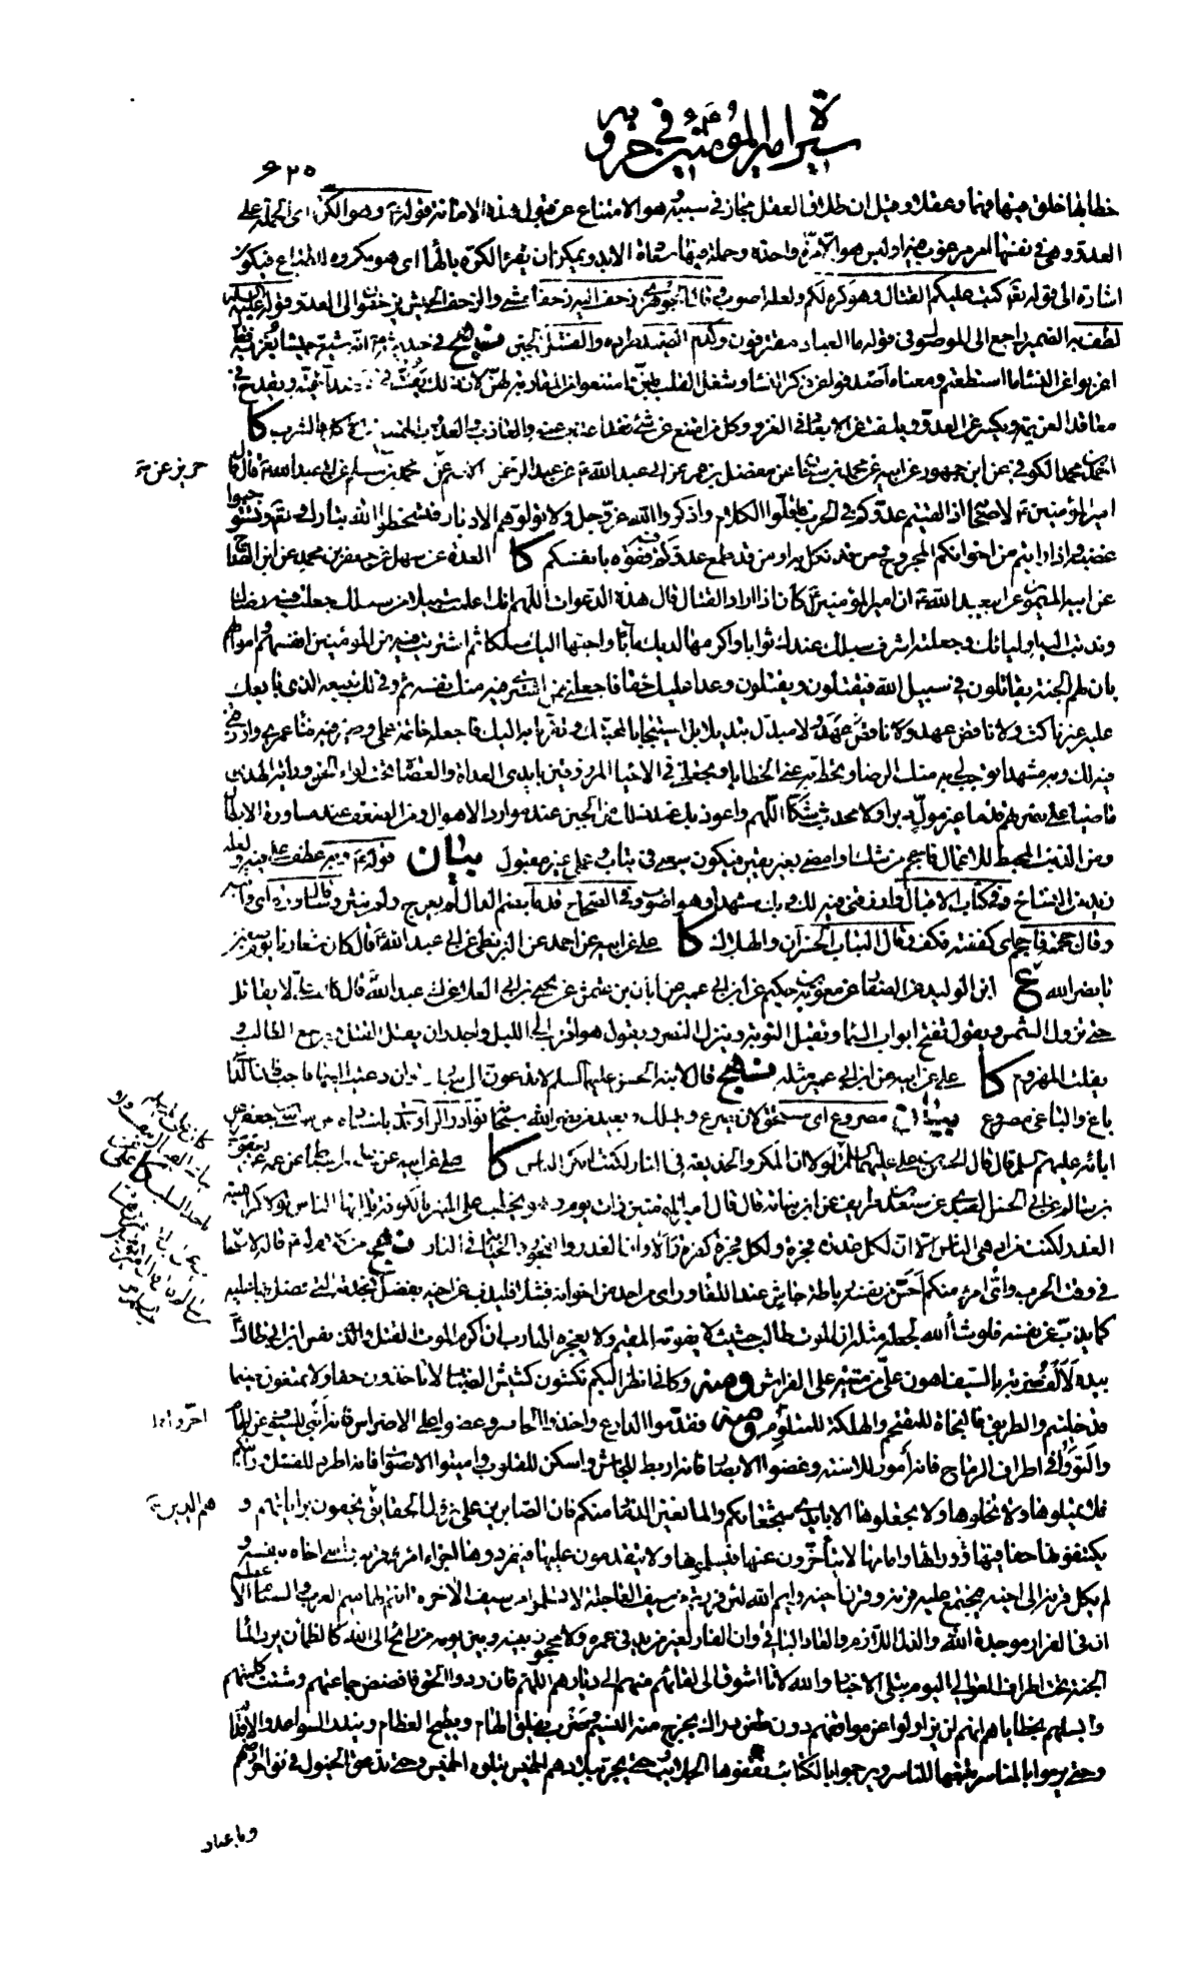 سيرة امير المؤمنين ع في حروبه
٦٢٥
خطابها خلق فيها فهما وعقلا وقيل ان اطلاق العقل مجاز في سببية هو الامتناع عن قبول هذه الامانة قوله ع وهو الكره اى الحملة على
العدو وهي في نفسها امر مرغوب فيه اذ ليس هو الا مرة واحدة وحملة فيها سعادة الابد ويمكن ان يقرء الكره بالهاء اى هو مكروه للطباع فيكون
اشارة الى قوله تعالى كتب عليكم القتال وهو كره لكم ولعله اصوب وقال الجوهرى زحف اليه زحفا مشى والزحف الجيش يزحفون الى العدو قوله عليه السلم
لطف به الضمير راجع الى الموصول في قوله ما العباد مقترفون نهج في حديثه ع انه شيع جيشا يغزيه فقال
اعزبوا عن النساء ما استطعتم ومعناه اصدفوا عن ذكر النساء وشغل القلب بهن وامتنعوا من المقاربة لهن لان ذلك يفت في عضد الحمية ويقدح في
معاقد العزيمة ويكسر عن العدو ويلفت عن الابعاد في الغزو وكل من امتنع من شئ فقد اعزب عنه والعازب والعذوب الممتنع من الاكل والشرب كا
احمد بن محمد الكوفي عن ابن جمهور عن ابيه عن محمد بن سنان عن مفضل بن عمر عن ابى عبدالله ع وعن عبد الرحمن الاصم عن محمد بن مسلم عن ابى عبدالله ع قال قال
حريز عن
امير المؤمنين ع لاصحابه اذا لقيتم عدوكم في الحرب فاقلوا الكلام واذكروا الله عز وجل ولا تولوهم الادبار فتسخطوا الله تبارك وتعالى وتستوجبوا
غضبه واذا رايتم من اخوانكم المجروح ومن قد نكل به او من قد طمع عدوكم فيه فقوه بانفسكم كا العدة عن سهل عن جعفر بن محمد عن ابن القداح
عن ابيه الميمون عن ابى عبد الله ع ان امير المؤمنين ع كان اذا اراد القتال قال هذه الدعوات اللهم انك اعلمت سبيلا من سبلك جعلت فيه رضاك
وندبت اليه اولياءك وجعلته اشرف سبلك عندك ثوابا واكرمها لديك مآبا واحبها اليك مسلكا ثم اشتريت فيه من المؤمنين انفسهم واموالهم
بان لهم الجنة يقاتلون في سبيل الله فيقتلون ويقتلون وعدا عليك حقا فاجعلنى ممن اشترى فيه منك نفسه ثم وفى لك ببيعه الذى بايعك
عليه غير ناكث ولا ناقض عهد ولا مبدل تبديلا بل استيجابا لمحبتك وتقربا به اليك فاجعله خاتمة عملى وصير فيه فناء عمرى وارزقنى
فيه لك وبه مشهدا توجب لى به منك الرضا وتحط به عنى الخطايا وتجعلنى في الاحياء المرزوقين بايدى العداة والعصاة تحت لواء الحق وراية الهدى
ماضيا على نصرتهم قدما غير مول دبرا ولا محدث شكا اللهم واعوذ بك عند ذلك من الجبن عند موارد الاهوال ومن الضعف عند مساورة الابطال
ومن الذنب المحبط للاعمال فاحجم من شك او امضى بغير يقين فيكون سعيى في تباب وعملى غير مقبول بيان قوله ع وبه عطف على فيه ولعله
زيد من النساخ وفي كتاب الاقبال وارزقنى فيه لك وبك مشهدا وهو اصوب وفي الصحاح قدما بضم الدال لم يعرج ولم ينثن وقال ساوره اى واثبه
وقال حجمته فاحجم اى كففته فكف وقال التباب الخسران والهلاك كا على عن ابيه عن احمد عن البزنطى عن ابى عبدالله ع قال كان شعارنا يوم صفين
يا نصر الله ع ابن الوليد عن الصفار عن معوية بن حكيم عن ابن ابى عمير عن ابان بن عثمن عن يحيى بن ابى العلا عن ابى عبدالله قال كان على لا يقاتل
حتى تزول الشمس ويقول تفتح ابواب السماء وتقبل التوبة وينزل النصر ويقول هو اقرب الى الليل واجدر ان يقل القتل ويرجع الطالب و
يفلت المهزوم كا على عن ابيه عن ابن ابى عمير مثله نهج قال لابنه الحسن عليهما السلم لا تدعون الى مبارزة وان دعيت اليها فاجب فان الداعى
باغ والباغى مصروع بيان مصروع اى مستحق لان يصرع
ابائه عليهم السلم قال قال الحسين بن على عليهما السلم لولا ان المكر والخديعة في النار لكنت امكر الناس كا على عن ابيه عن على بن اسباط عن عمه يعقوب
بن سالم عن ابى الحسن العبدى عن سعد بن طريف عن ابن نباته قال قال امير المؤمنين ذات يوم وهو يخطب على المنبر بالكوفة يا ايها الناس لولا كراهية
الغدر لكنت من ادهى الناس الا ان لكل غدرة فجرة ولكل فجرة كفرة الا وان الغدر والفجور والخيانة في النار نهج من كلام له ع قاله لاصحابه
في وقت الحرب واى امرئ منكم احس من نفسه رباطة جاش عند اللقاء وراى من احد من اخوانه فشلا فليذب عن اخيه بفضل نجدته التى فضل بها عليه
كما يذب عن نفسه فلو شاء الله لجعله مثله ان الموت طالب حثيث لا يفوته المقيم ولا يعجزه الهارب ان اكرم الموت القتل والذى نفس ابن ابى طالب
بيده لالف ضربة بالسيف اهون على من ميتة على الفراش ومنه وكانى انظر اليكم تكشون كشيش الضباب لا تاخذون حقا ولا تمنعون ضيما
قد خليتم والطريق فالنجاة للمقتحم والهلكة للمتلوم ومنه فقدموا الدارع واخروا الحاسر وعضوا على الاضراس فانه انبى للسيوف عن الهام
والتووا في اطراف الرماح فانه امور للاسنة وغضوا الابصار فانه اربط للجاش واسكن للقلوب واميتوا الاصوات فانه اطرد للفشل ورايتكم
فلا تميلوها ولا تخلوها ولا تجعلوها الا بايدى شجعانكم والمانعين الذمار منكم فان الصابرين على نزول الحقائق هم الذين يحفون براياتهم و
يكتنفونها حفافيها ووراءها وامامها لا يتاخرون عنها فيسلموها ولا يتقدمون عليها فيفردوها اجزا امرؤ قرنه وآسى اخاه بنفسه و
لم يكل قرنه الى اخيه فيجتمع عليه قرنه وقرن اخيه وايم الله لئن فررتم من سيف العاجلة لا تسلموا من سيف الآخرة انتم لهاميم العرب والسنام الاعظم
ان في الفرار موجدة الله والذل اللازم والعار الباقي وان الفار لغير مزيد في عمره ولا محجوز بينه وبين يومه من رائح الى الله كالظمآن يرد الماء
الجنة تحت اطراف العوالى اليوم تبلى الاخبار والله لانا اشوق الى لقائهم منهم الى ديارهم اللهم فان ردوا الحق فافضض جماعتهم وشتت كلمتهم
وابسلهم بخطاياهم انهم لن يزولوا عن مواقفهم دون طعن دراك يخرج منه النسيم وضرب يفلق الهام ويطيح العظام ويندر السواعد والاقدام
وحتى يرموا بالمناسر تتبعها المناسر ويرجموا بالكتائب تقفوها الحلائب حتى يجر ببلادهم الخميس يتلوه الخميس وحتى تدعق الخيول في نواحر ارضهم
وباعنان